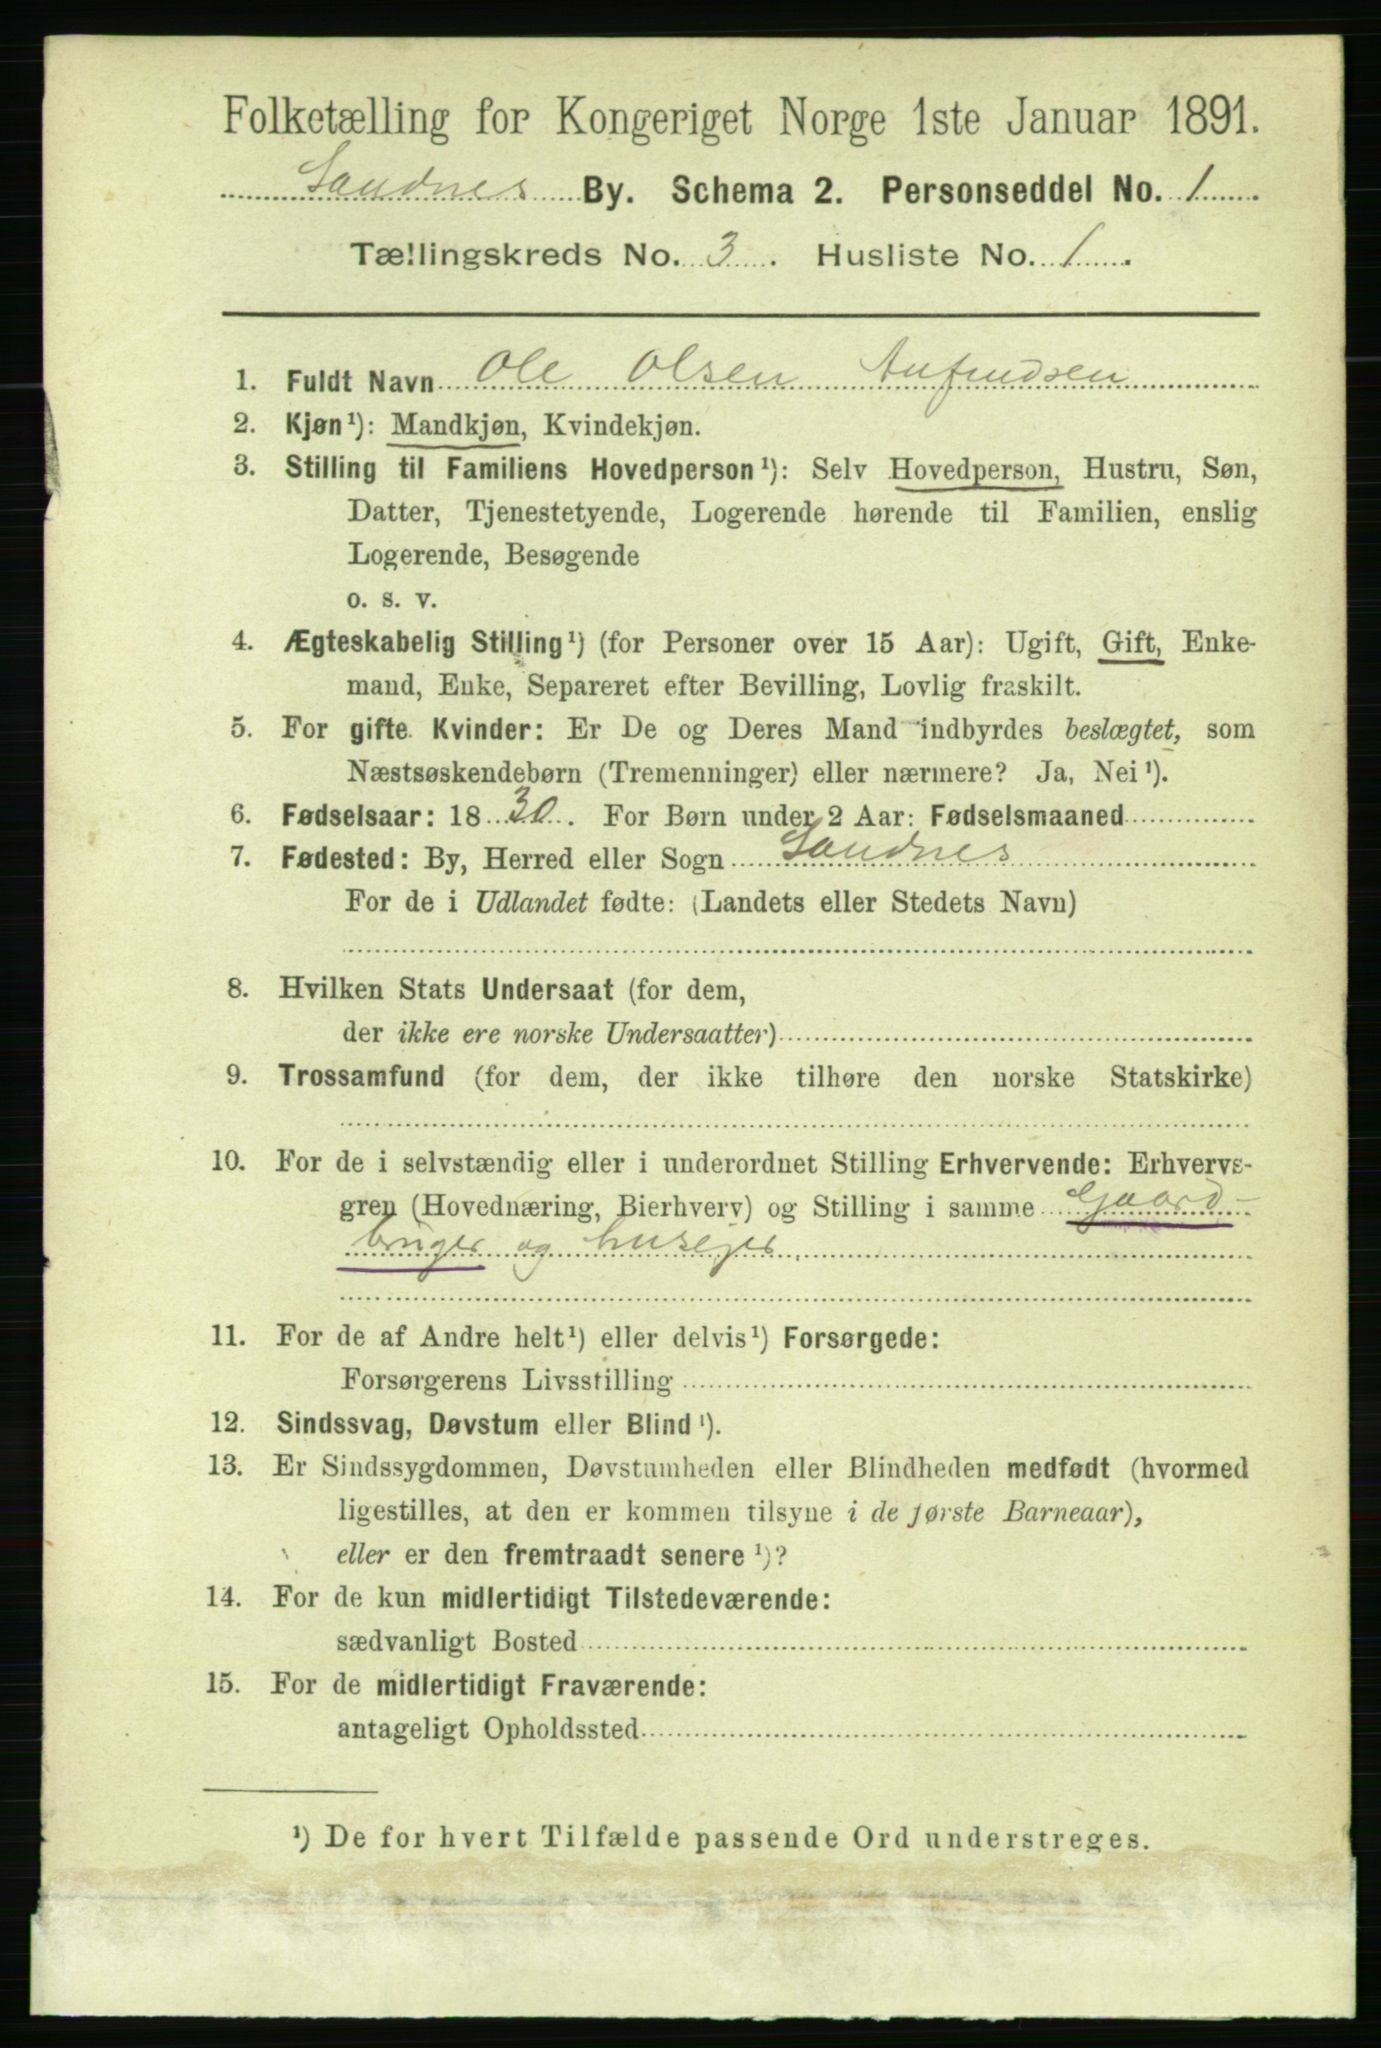 Folketælling for Kongeriget Norge 1ste Januar 1891.
Sandnes By. Schema 2. Personseddel No. 1
Tællingskreds No. 3. Husliste No. 1.
1. Fuldt Navn Ole Olsen Anfindsen
2. Kjøn¹): Mandkjøn, Kvindekjøn.
3. Stilling til Familiens Hovedperson¹): Selv Hovedperson, Hustru, Søn,
Datter, Tjenestetyende, Logerende hørende til Familien, enslig
Logerende, Besøgende
o. s. v.
4. Ægteskabelig Stilling¹) (for Personer over 15 Aar): Ugift, Gift, Enke-
mand, Enke, Separeret efter Bevilling, Lovlig fraskilt.
5. For gifte Kvinder: Er De og Deres Mand indbyrdes beslægtet, som
Næstsøskendebørn (Tremenninger) eller nærmere? Ja, Nei¹).
6. Fødselsaar: 1830. For Børn under 2 Aar: Fødselsmaaned
7. Fødested: By, Herred eller Sogn Sandnes
For de i Udlandet fødte: (Landets eller Stedets Navn)
8. Hvilken Stats Undersaat (for dem,
der ikke ere norske Undersaatter)
9. Trossamfund (for dem, der ikke tilhøre den norske Statskirke)
10. For de i selvstændig eller i underordnet Stilling Erhvervende: Erhvervs-
gren (Hovednæring, Bierhverv) og Stilling i samme Gaard-
bruger og husejer
11. For de af Andre helt¹) eller delvis¹) Forsørgede:
Forsørgerens Livsstilling
12. Sindssvag, Døvstum eller Blind¹).
13. Er Sindssygdommen, Døvstumheden eller Blindheden medfødt (hvormed
ligestilles, at den er kommen tilsyne i de første Barneaar),
eller er den fremtraadt senere¹)?
14. For de kun midlertidigt Tilstedeværende:
sædvanligt Bosted
15. For de midlertidigt Fraværende:
antageligt Opholdssted
¹) De for hvert Tilfælde passende Ord understreges.